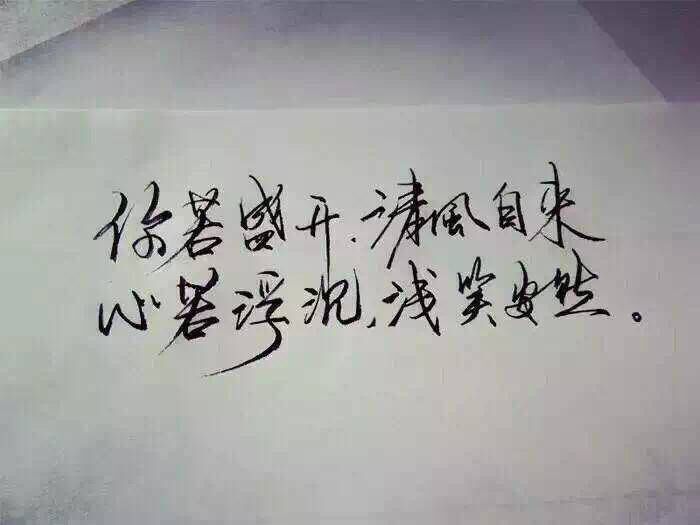 你若盛开.清風自来
心若浮沉,浅笑安然。